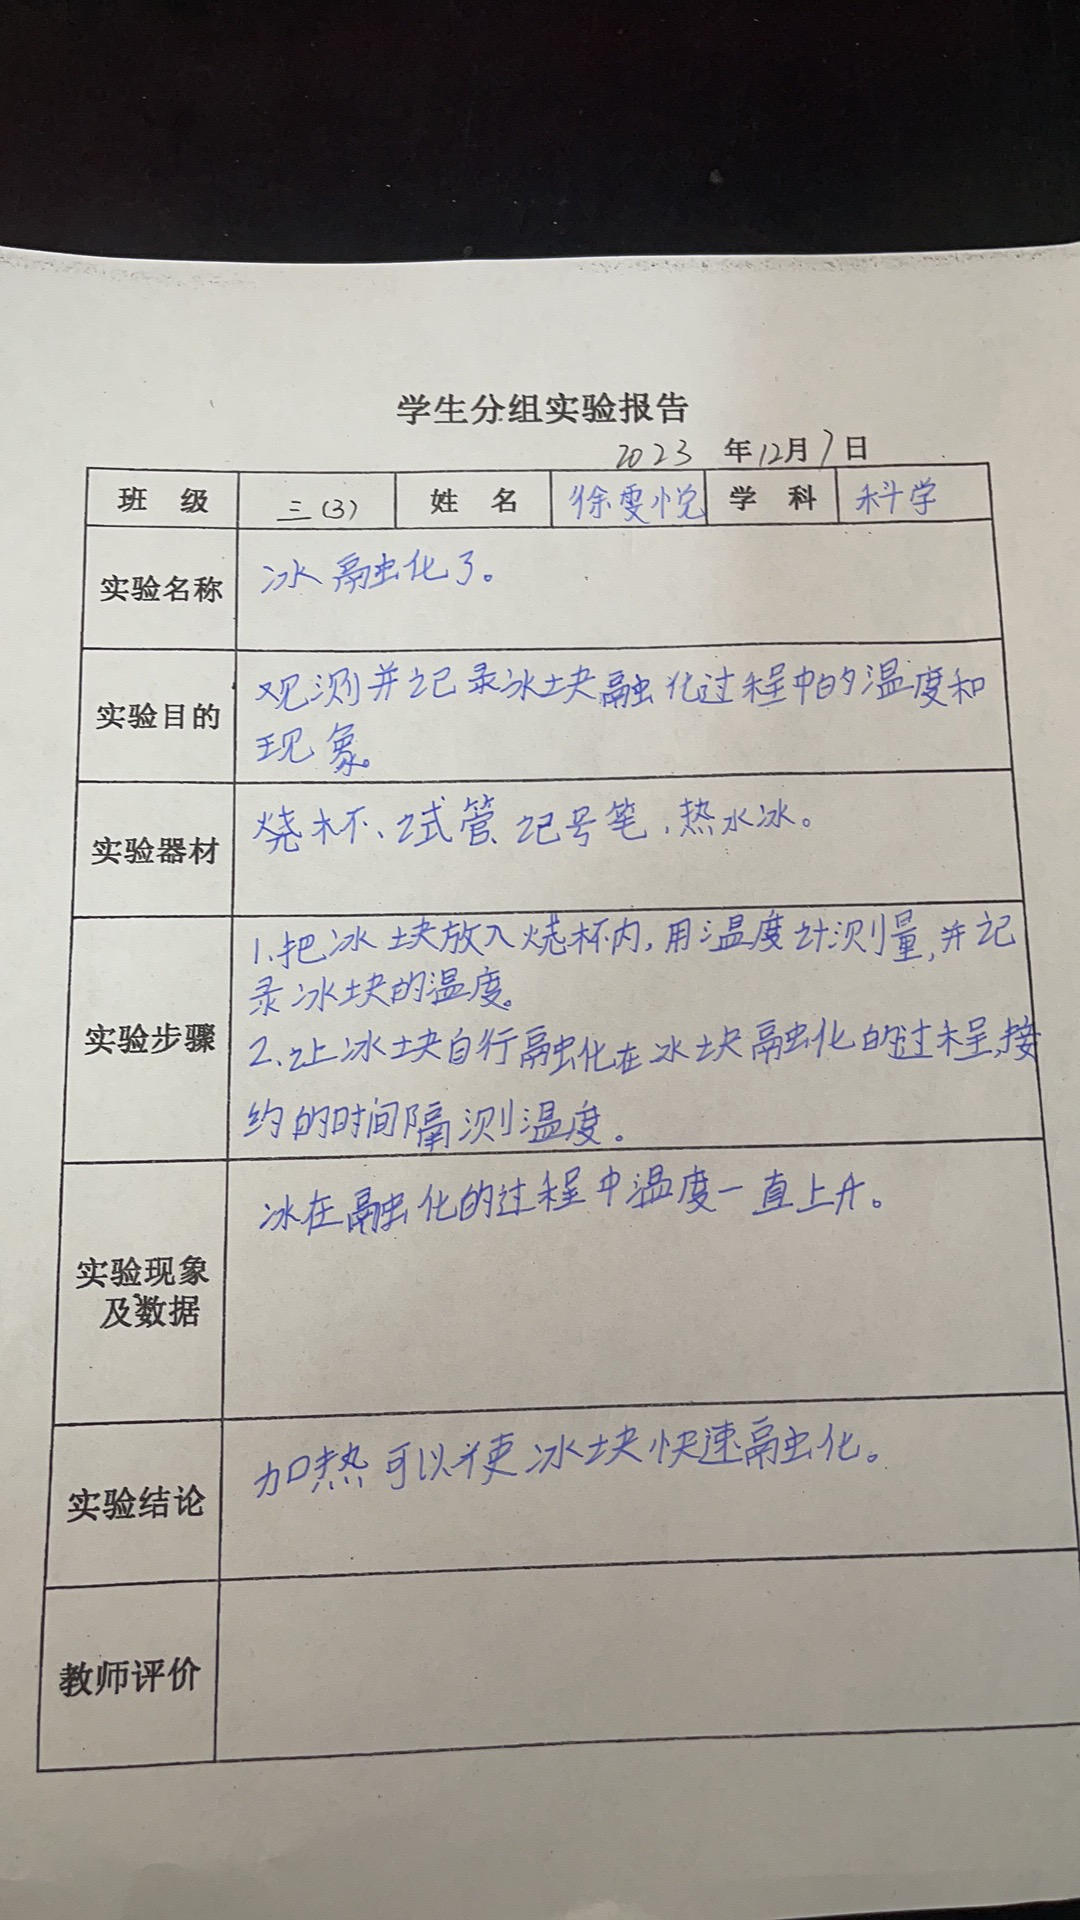 学生分组实验报告
2023 年12月7日
班 级 三(3) 姓 名 徐雯悦 学 科 科学
实验名称 冰融化了。
实验目的 观测并记录冰块融化过程中的温度和
现象。
实验器材 烧杯、试管、记号笔,热水冰。
实验步骤 1.把冰块放入烧杯内,用温度计测量,并记
录冰块的温度。
2.让冰块自行融化在冰块融化的过程,接
约的时间隔测温度。
实验现象
及数据 冰在融化的过程中温度一直上升。
实验结论 加热可以使冰块快速融化。
教师评价